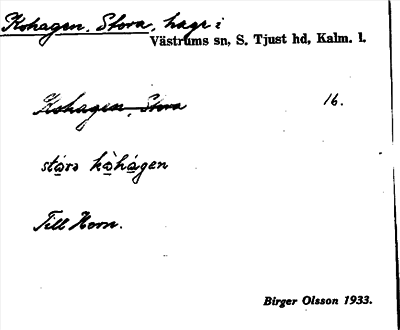 Kohagen, Stora, hage i
Västrums sn, S. Tjust hd, Kalm. l.
Kohagen, Stora 16.
stárə kò̱há̱gen
Till Horn.
Birger Olsson 1933.